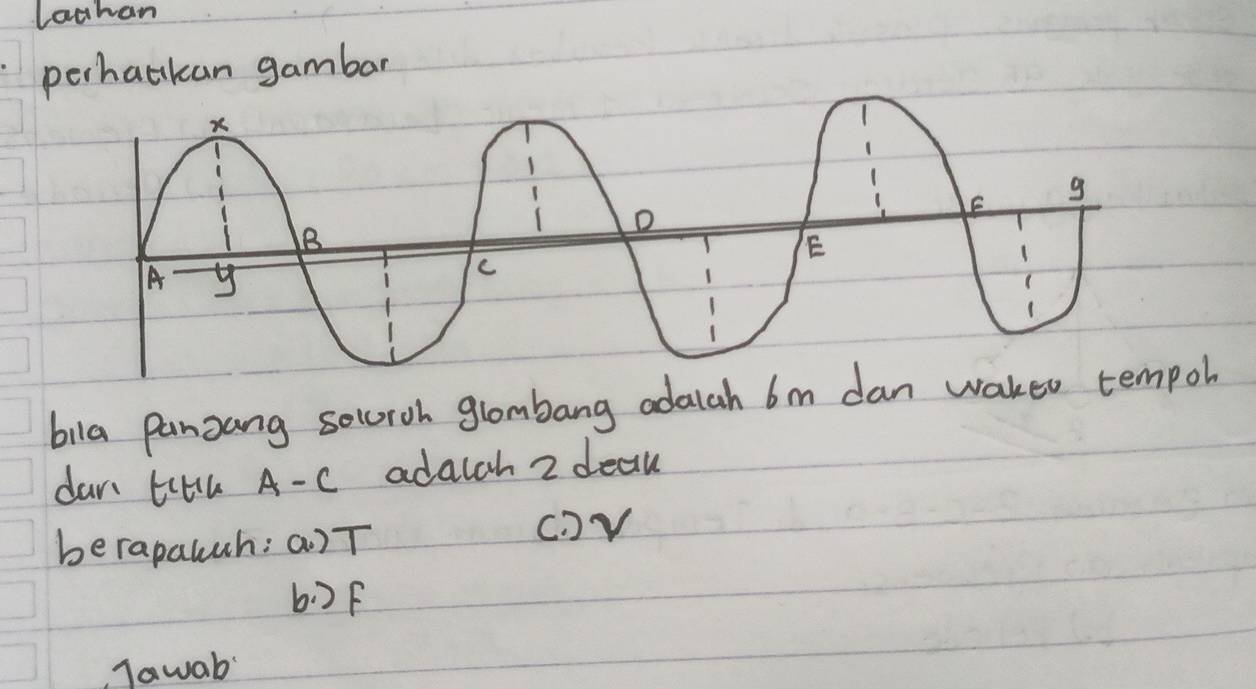 Latihan
perhatikan gambar
x
g
B
D
F
A
y
C
E
bila panjang seluruh glombang adalah 6m dan waktu tempoh
dari titik A-C adalah 2 detik
berapakah: a.) T c.) V
b.) F
Jawab: